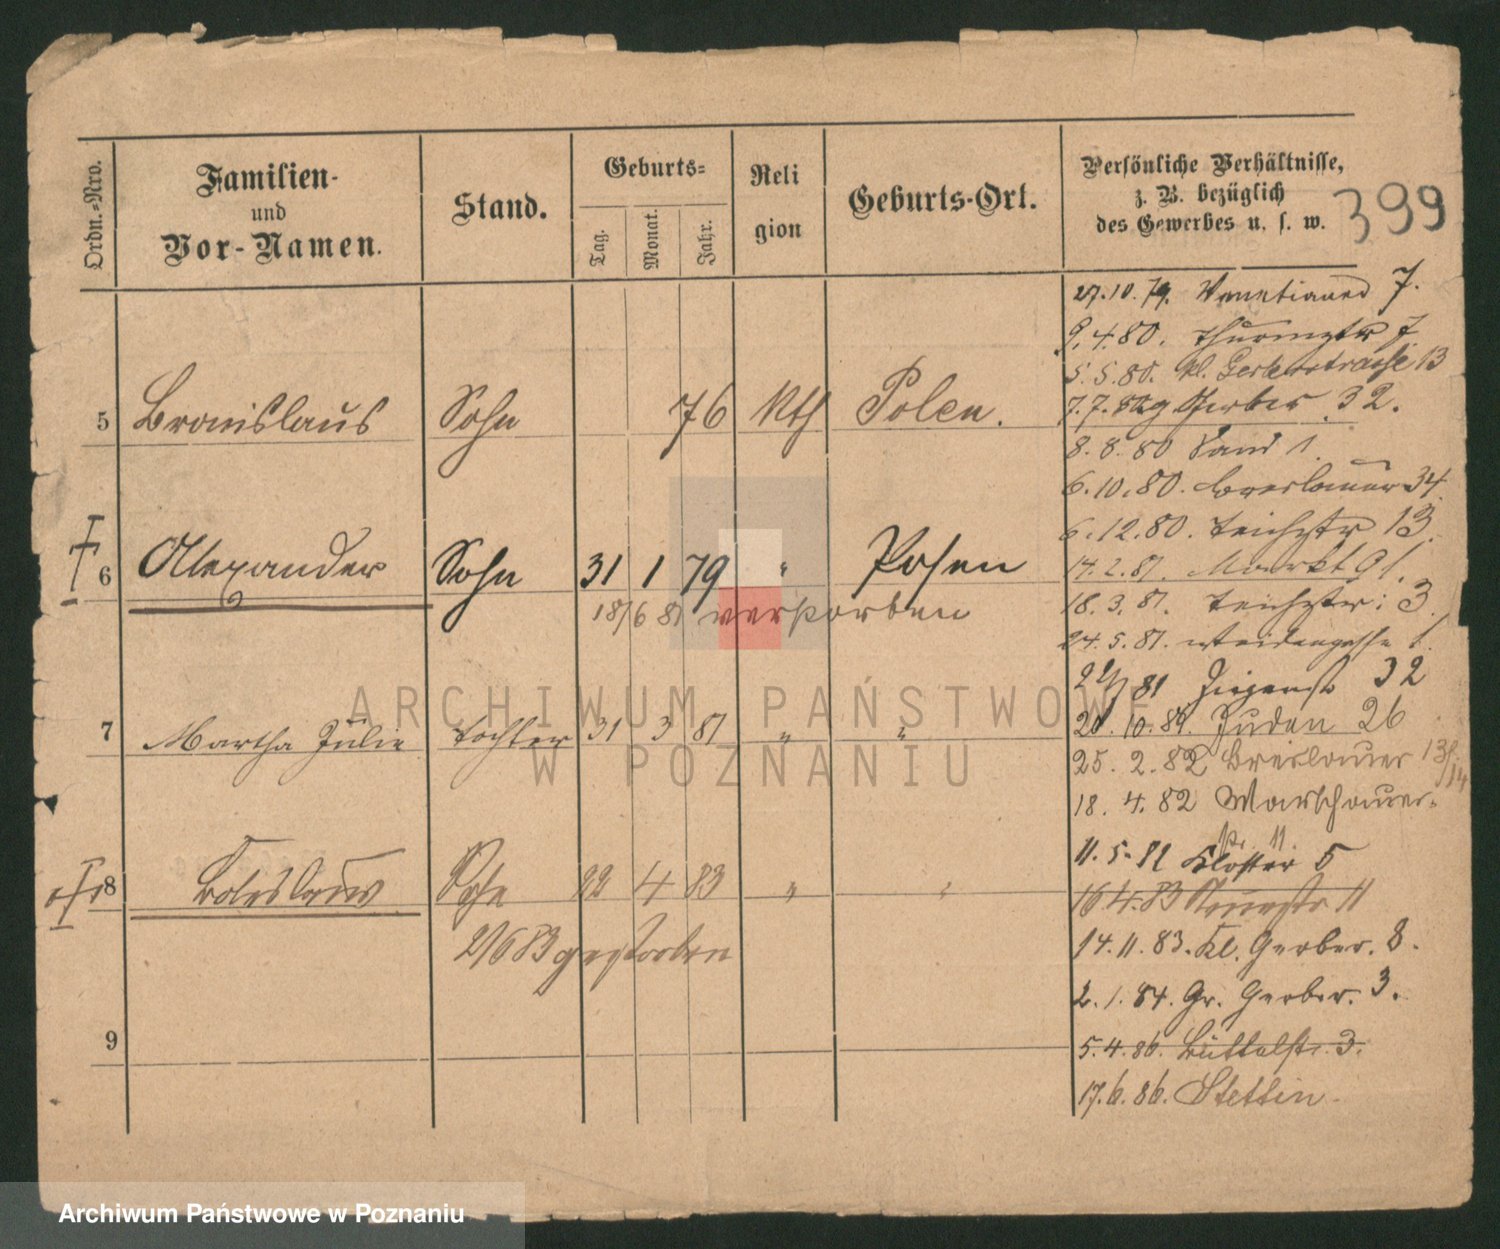 Ordn.-Nro.
Familien-
und
Vor-Namen.
Stand.
Geburts-
Tag.
Monat.
Jahr.
Reli
gion
Geburts-Ort.
Persönliche Verhältnisse,
z. B. bezüglich
des Gewerbes u. s. w.
399
5 Bronislaus Sohn 76 Kth Polen.
6 Alexander Sohn 31 1 79 " Posen
18/6 81 verstorben
7 Martha Julie Tochter 31 3 81 " "
8 Boleslaus Sohn 22 4 83 " "
2/6 83 gestorben
9
27.10.79. Venetianer 7.
9.4.80. Thurmstr 7
5.5.80. kl. Gerberstrasse 13
7.7.80 Gerber 32.
8.8.80 Sand 1.
6.10.80. Breslauer 34.
6.12.80. Teichstr 13.
14.2.81. Markt 91.
18.3.81. Teichstr: 3.
24.5.81. Weidengasse 1.
81 Ziegenstr 32
10. Juden 26
25.2.82 Breslauer 13/14
18.4.82 Warschauer-
str. 11.
11.5.82 Kloster 5
16 4.83 11
14.11.83. Kl. Gerber. 8.
2.1.84. Gr. Gerber. 3.
5.4.86. Büttelstr. 3.
17.6.86. Stettin.
ARCHIWUM PAŃSTWOWE
W POZNANIU
Archiwum Państwowe w Poznaniu